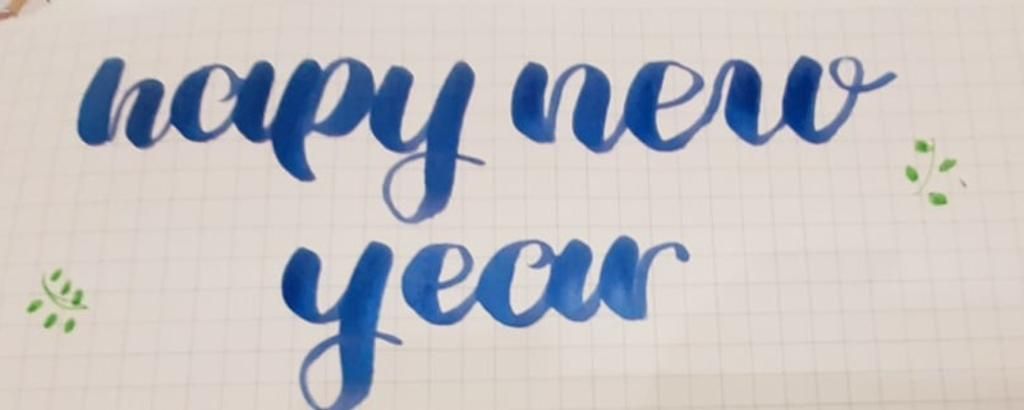 hapy new
year